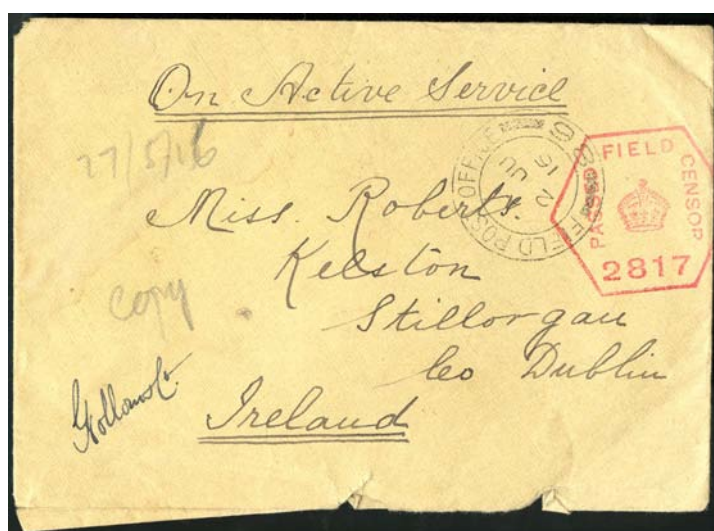 On Active Service
27/5/16
FIELD POST OFFICE
98
2 JU
16
PASSED FIELD CENSOR
2817
Miss. Roberts
Kelston
Stillorgan
Co Dublin
Ireland
copy